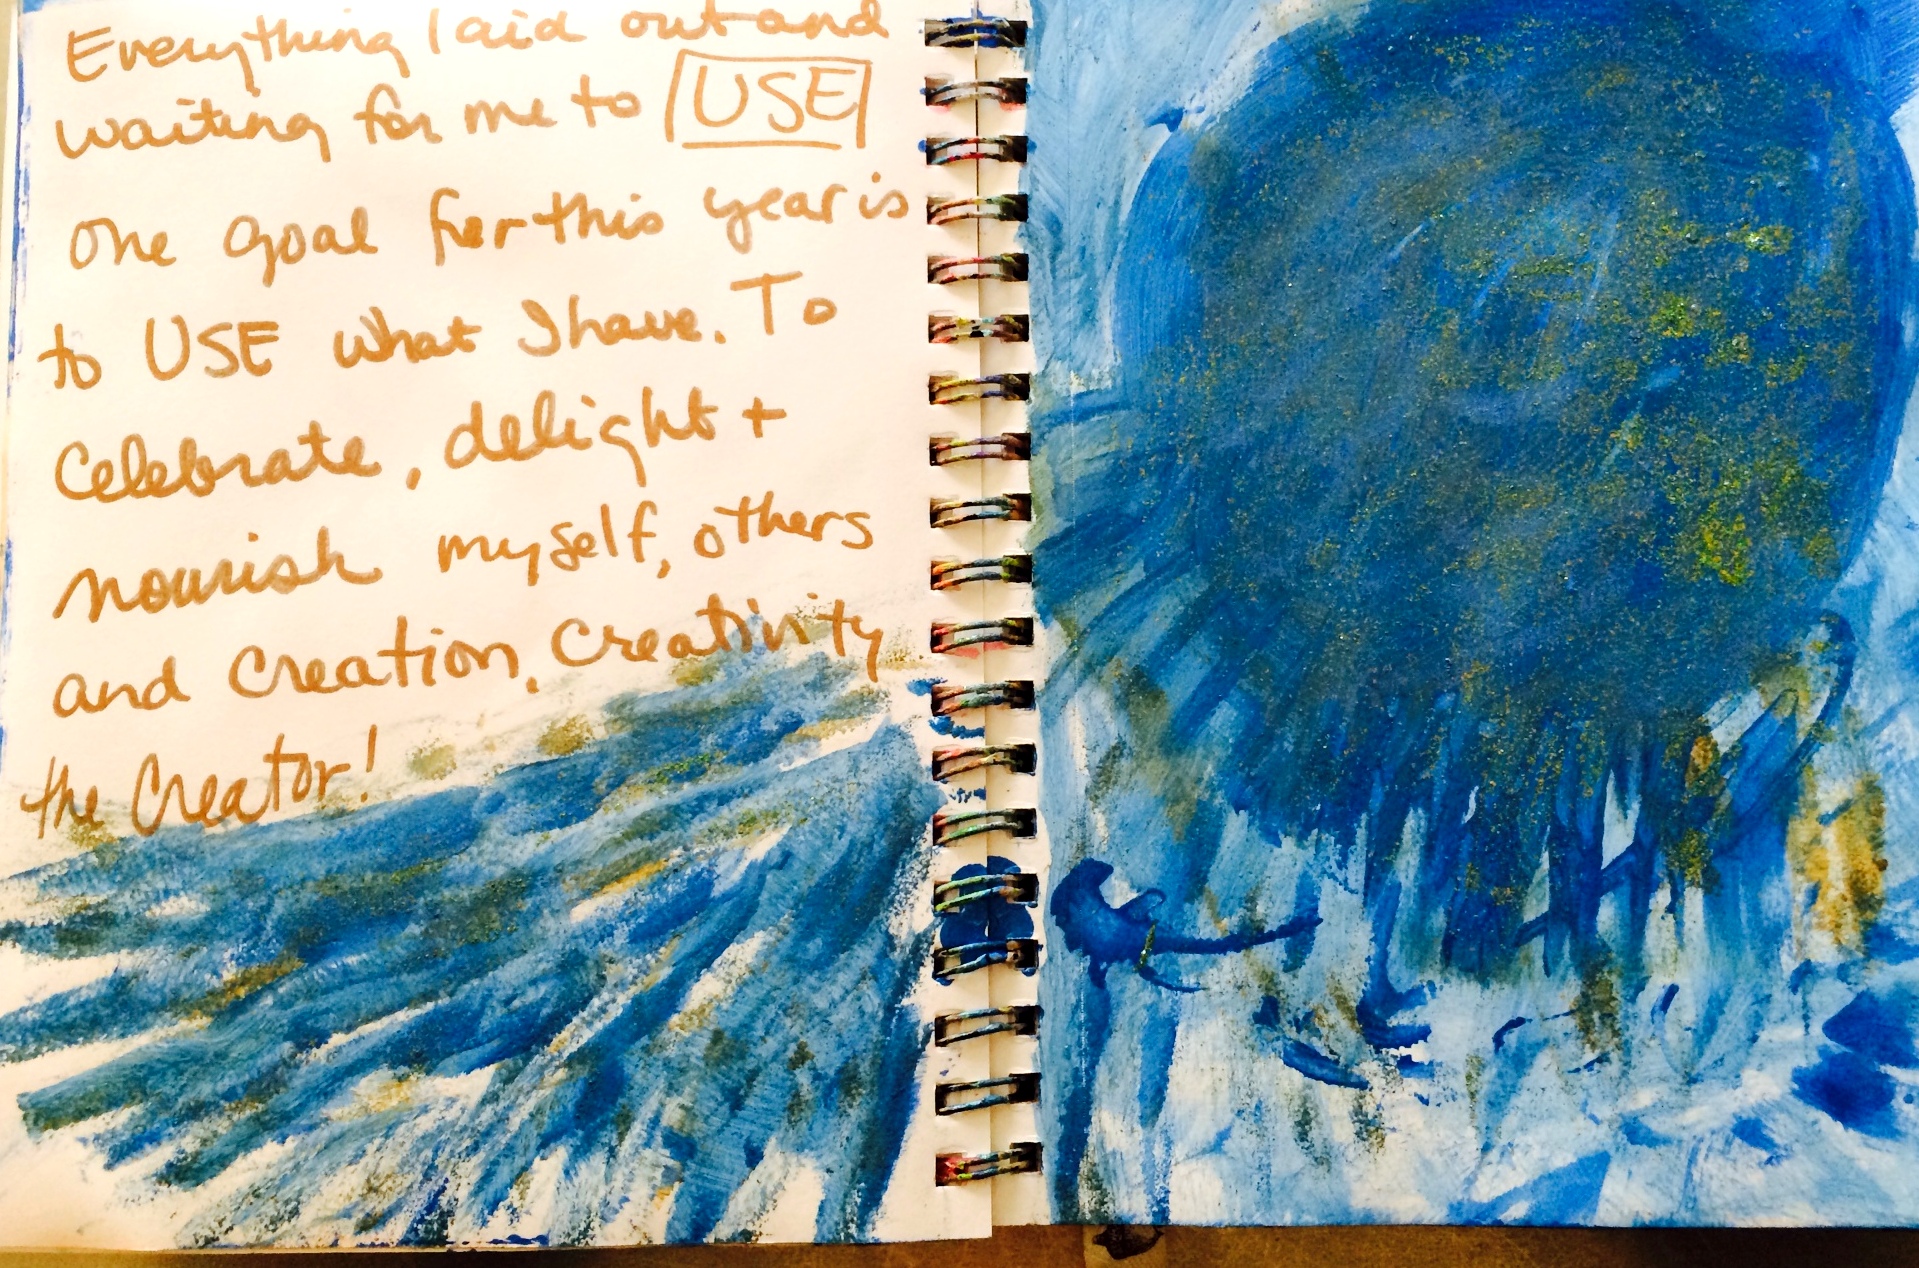 Everything laid out and
waiting for me to USE
One goal for this year is
to USE what I have. To
Celebrate, delight +
nourish myself, others
and Creation, Creativity
the Creator!